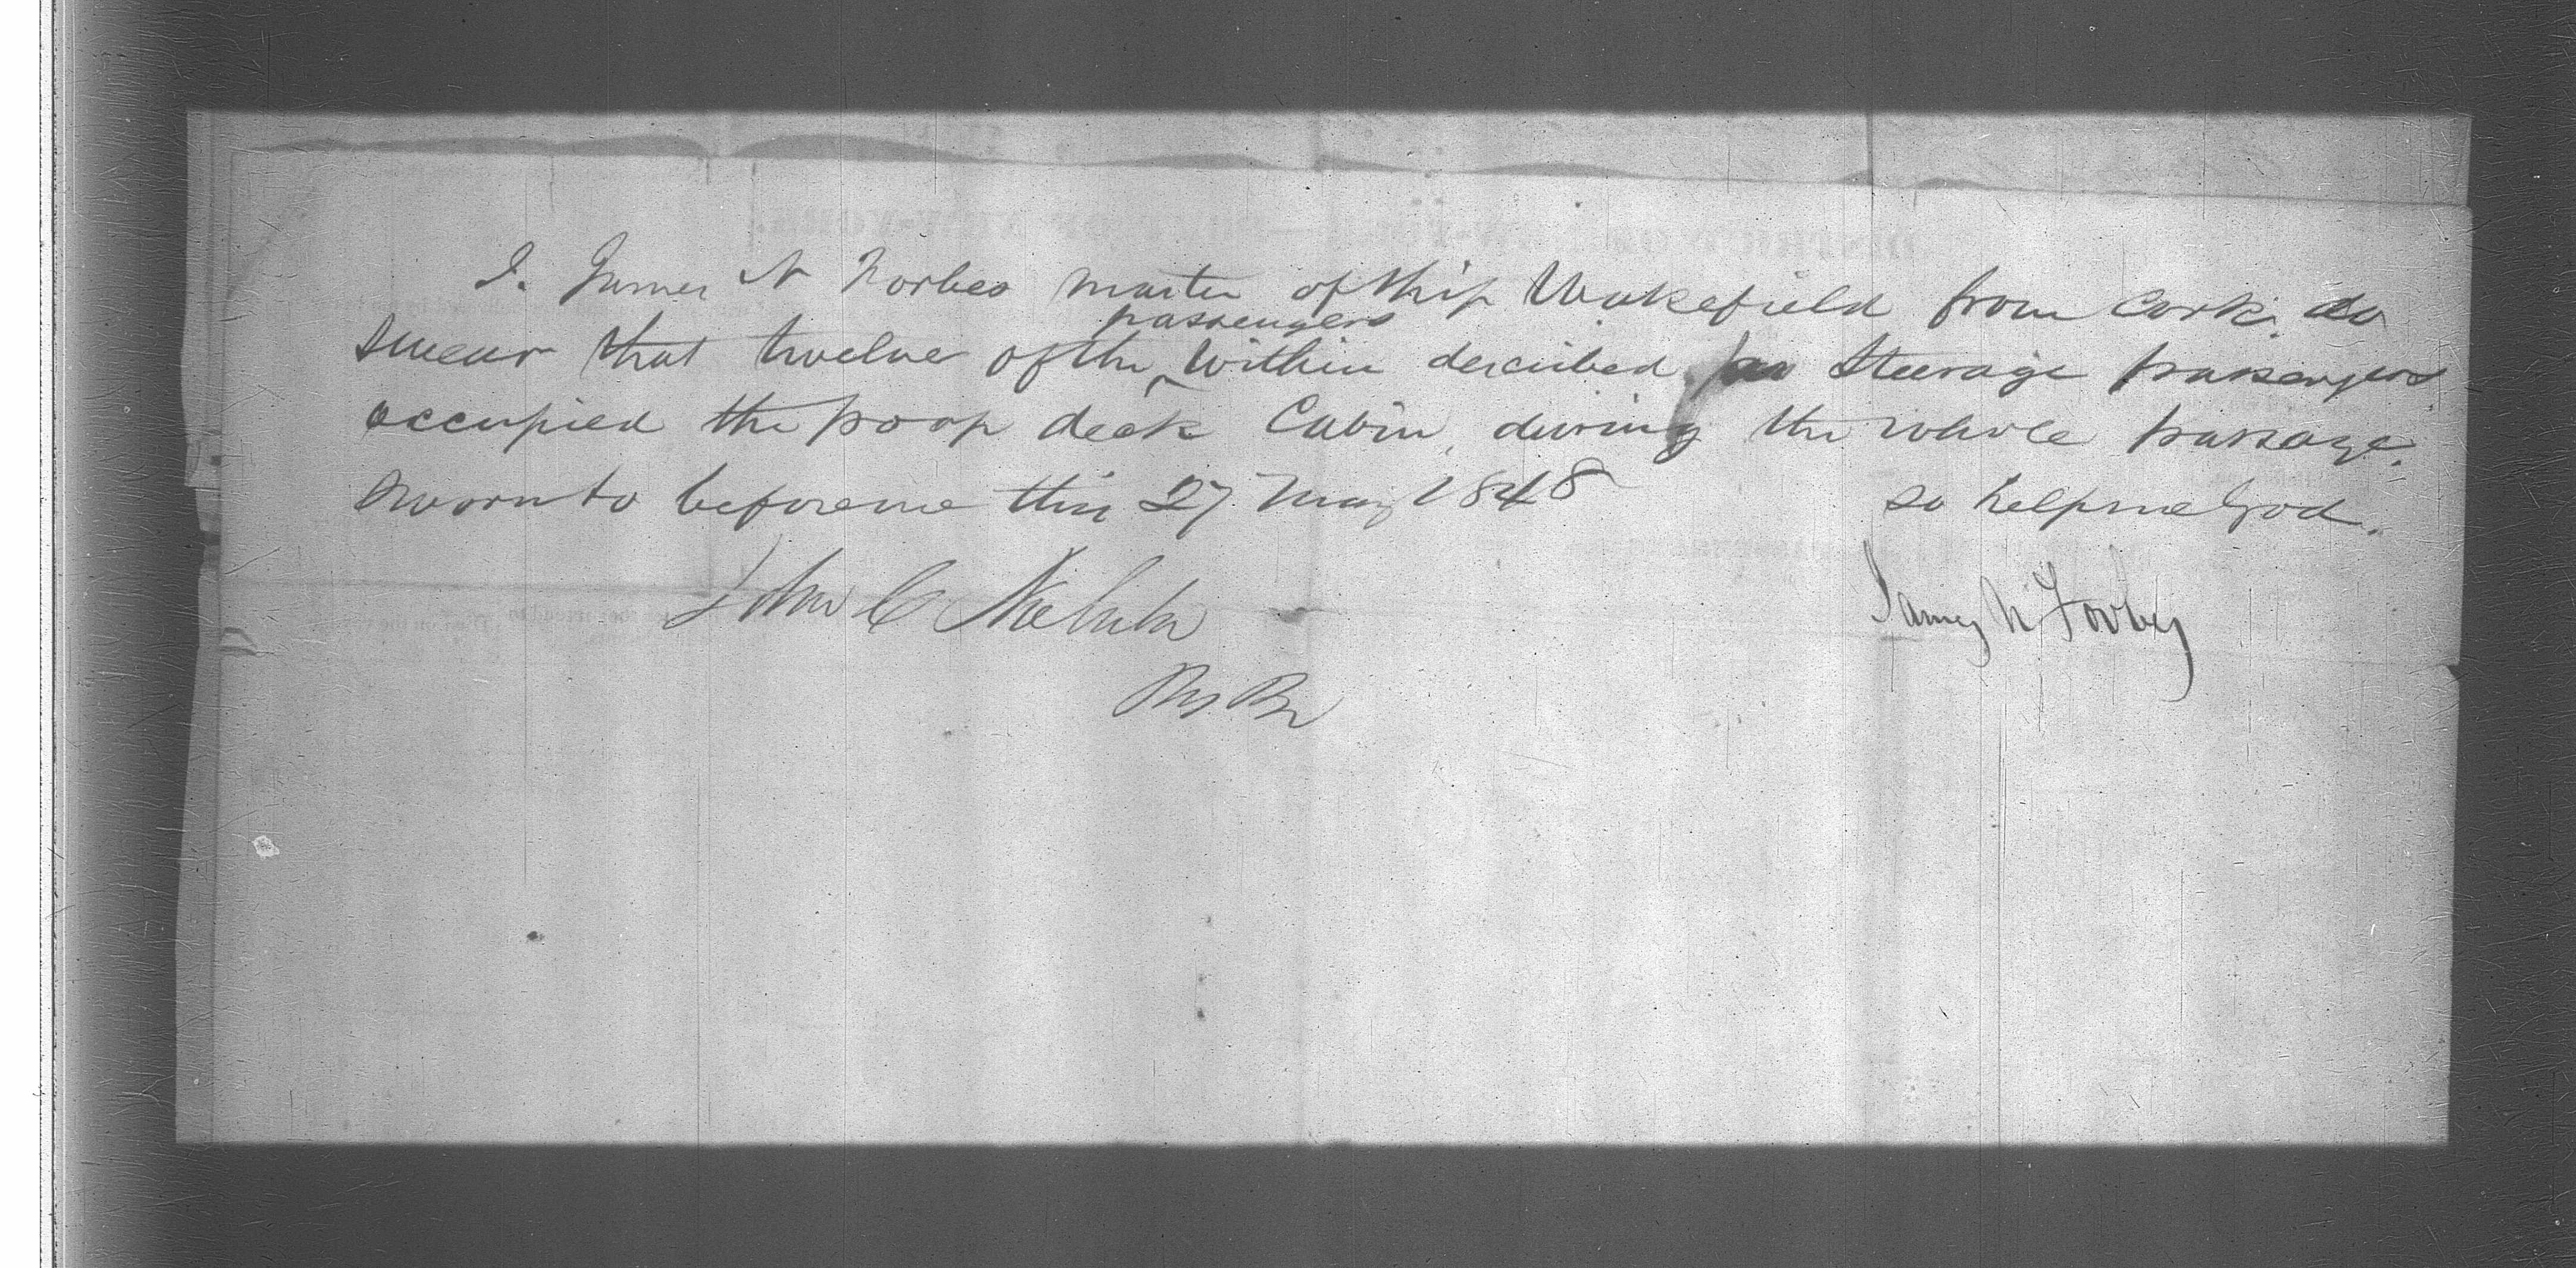 I. James N Forbes master of ship Wakefield from Cork. do
passengers
swear that twelve of the ^ within described as Steerage passengers
occupied the poop deck Cabin, during the whole passage.
Sworn to before me this 27 May 1848 so help me God.
John C
James N Forbes